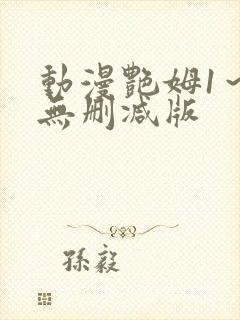 動漫艷姆1～
無刪減版
孫毅